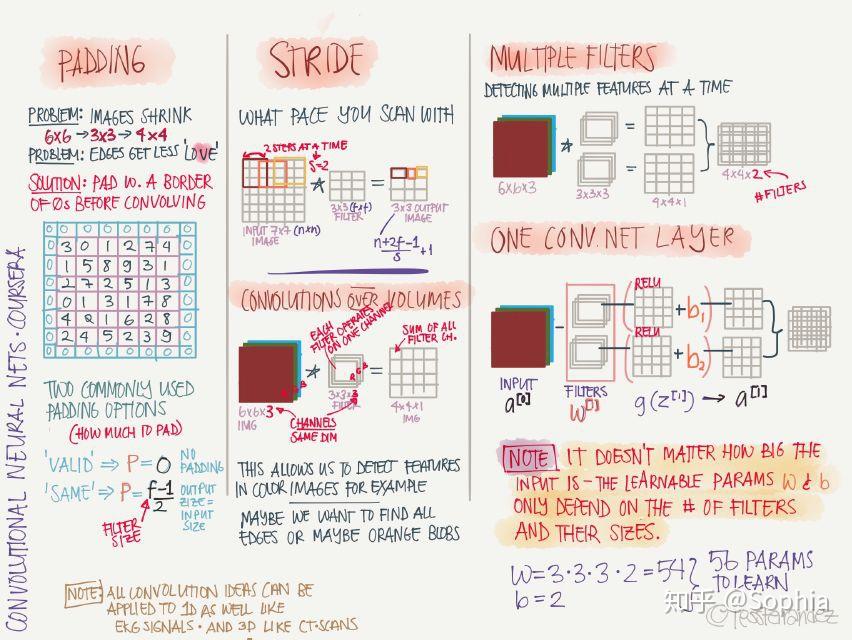 CONVOLUTIONAL NEURAL NETS · COURSERA
PADDING
PROBLEM: IMAGES SHRINK
6x6 → 3x3 → 4x4
PROBLEM: EDGES GET LESS 'LOVE'
SOLUTION: PAD W. A BORDER
OF 0s BEFORE CONVOLVING
0 0 0 0 0 0 0 0
0 3 0 1 2 7 4 0
0 1 5 8 9 3 1 0
0 2 7 2 5 1 3 0
0 0 1 3 1 7 8 0
0 4 2 1 6 2 8 0
0 2 4 5 2 3 9 0
0 0 0 0 0 0 0 0
TWO COMMONLY USED
PADDING OPTIONS
(HOW MUCH TO PAD)
'VALID' ⇒ P=0 NO PADDING
'SAME' ⇒ P= f-1/2 OUTPUT SIZE = INPUT SIZE
FILTER SIZE
NOTE: ALL CONVOLUTION IDEAS CAN BE
APPLIED TO 1D AS WELL LIKE
EKG SIGNALS · AND 3D LIKE CT-SCANS
STRIDE
WHAT PACE YOU SCAN WITH
2 STEPS AT A TIME
S=2
*
=
INPUT 7x7 (nxn)
IMAGE
3x3 (fxf)
FILTER
3x3 OUTPUT
IMAGE
n+2f-1/s +1
CONVOLUTIONS OVER VOLUMES
EACH
FILTER OPERATES
ON ONE CHANNEL
SUM OF ALL
FILTER CH.
R G B
*
R G B
=
6x6x3
IMG
3x3x3
FILTER
4x4x1
IMG
CHANNELS
SAME DIM
THIS ALLOWS US TO DETECT FEATURES
IN COLOR IMAGES FOR EXAMPLE
MAYBE WE WANT TO FIND ALL
EDGES OR MAYBE ORANGE BLOBS
MULTIPLE FILTERS
DETECTING MULTIPLE FEATURES AT A TIME
*
=
=
6x6x3
3x3x3
4x4x1
4x4x2
#FILTERS
ONE CONV. NET LAYER
RELU
( + b₁)
RELU
( + b₂)
INPUT
a[0]
FILTERS
W[1]
g(z[1]) → a[1]
NOTE IT DOESN'T MATTER HOW BIG THE
INPUT IS - THE LEARNABLE PARAMS W & b
ONLY DEPEND ON THE # OF FILTERS
AND THEIR SIZES.
W=3·3·3·2=54 } 56 PARAMS
b=2 TO LEARN
知乎 @Sophia
©TessFerrandez